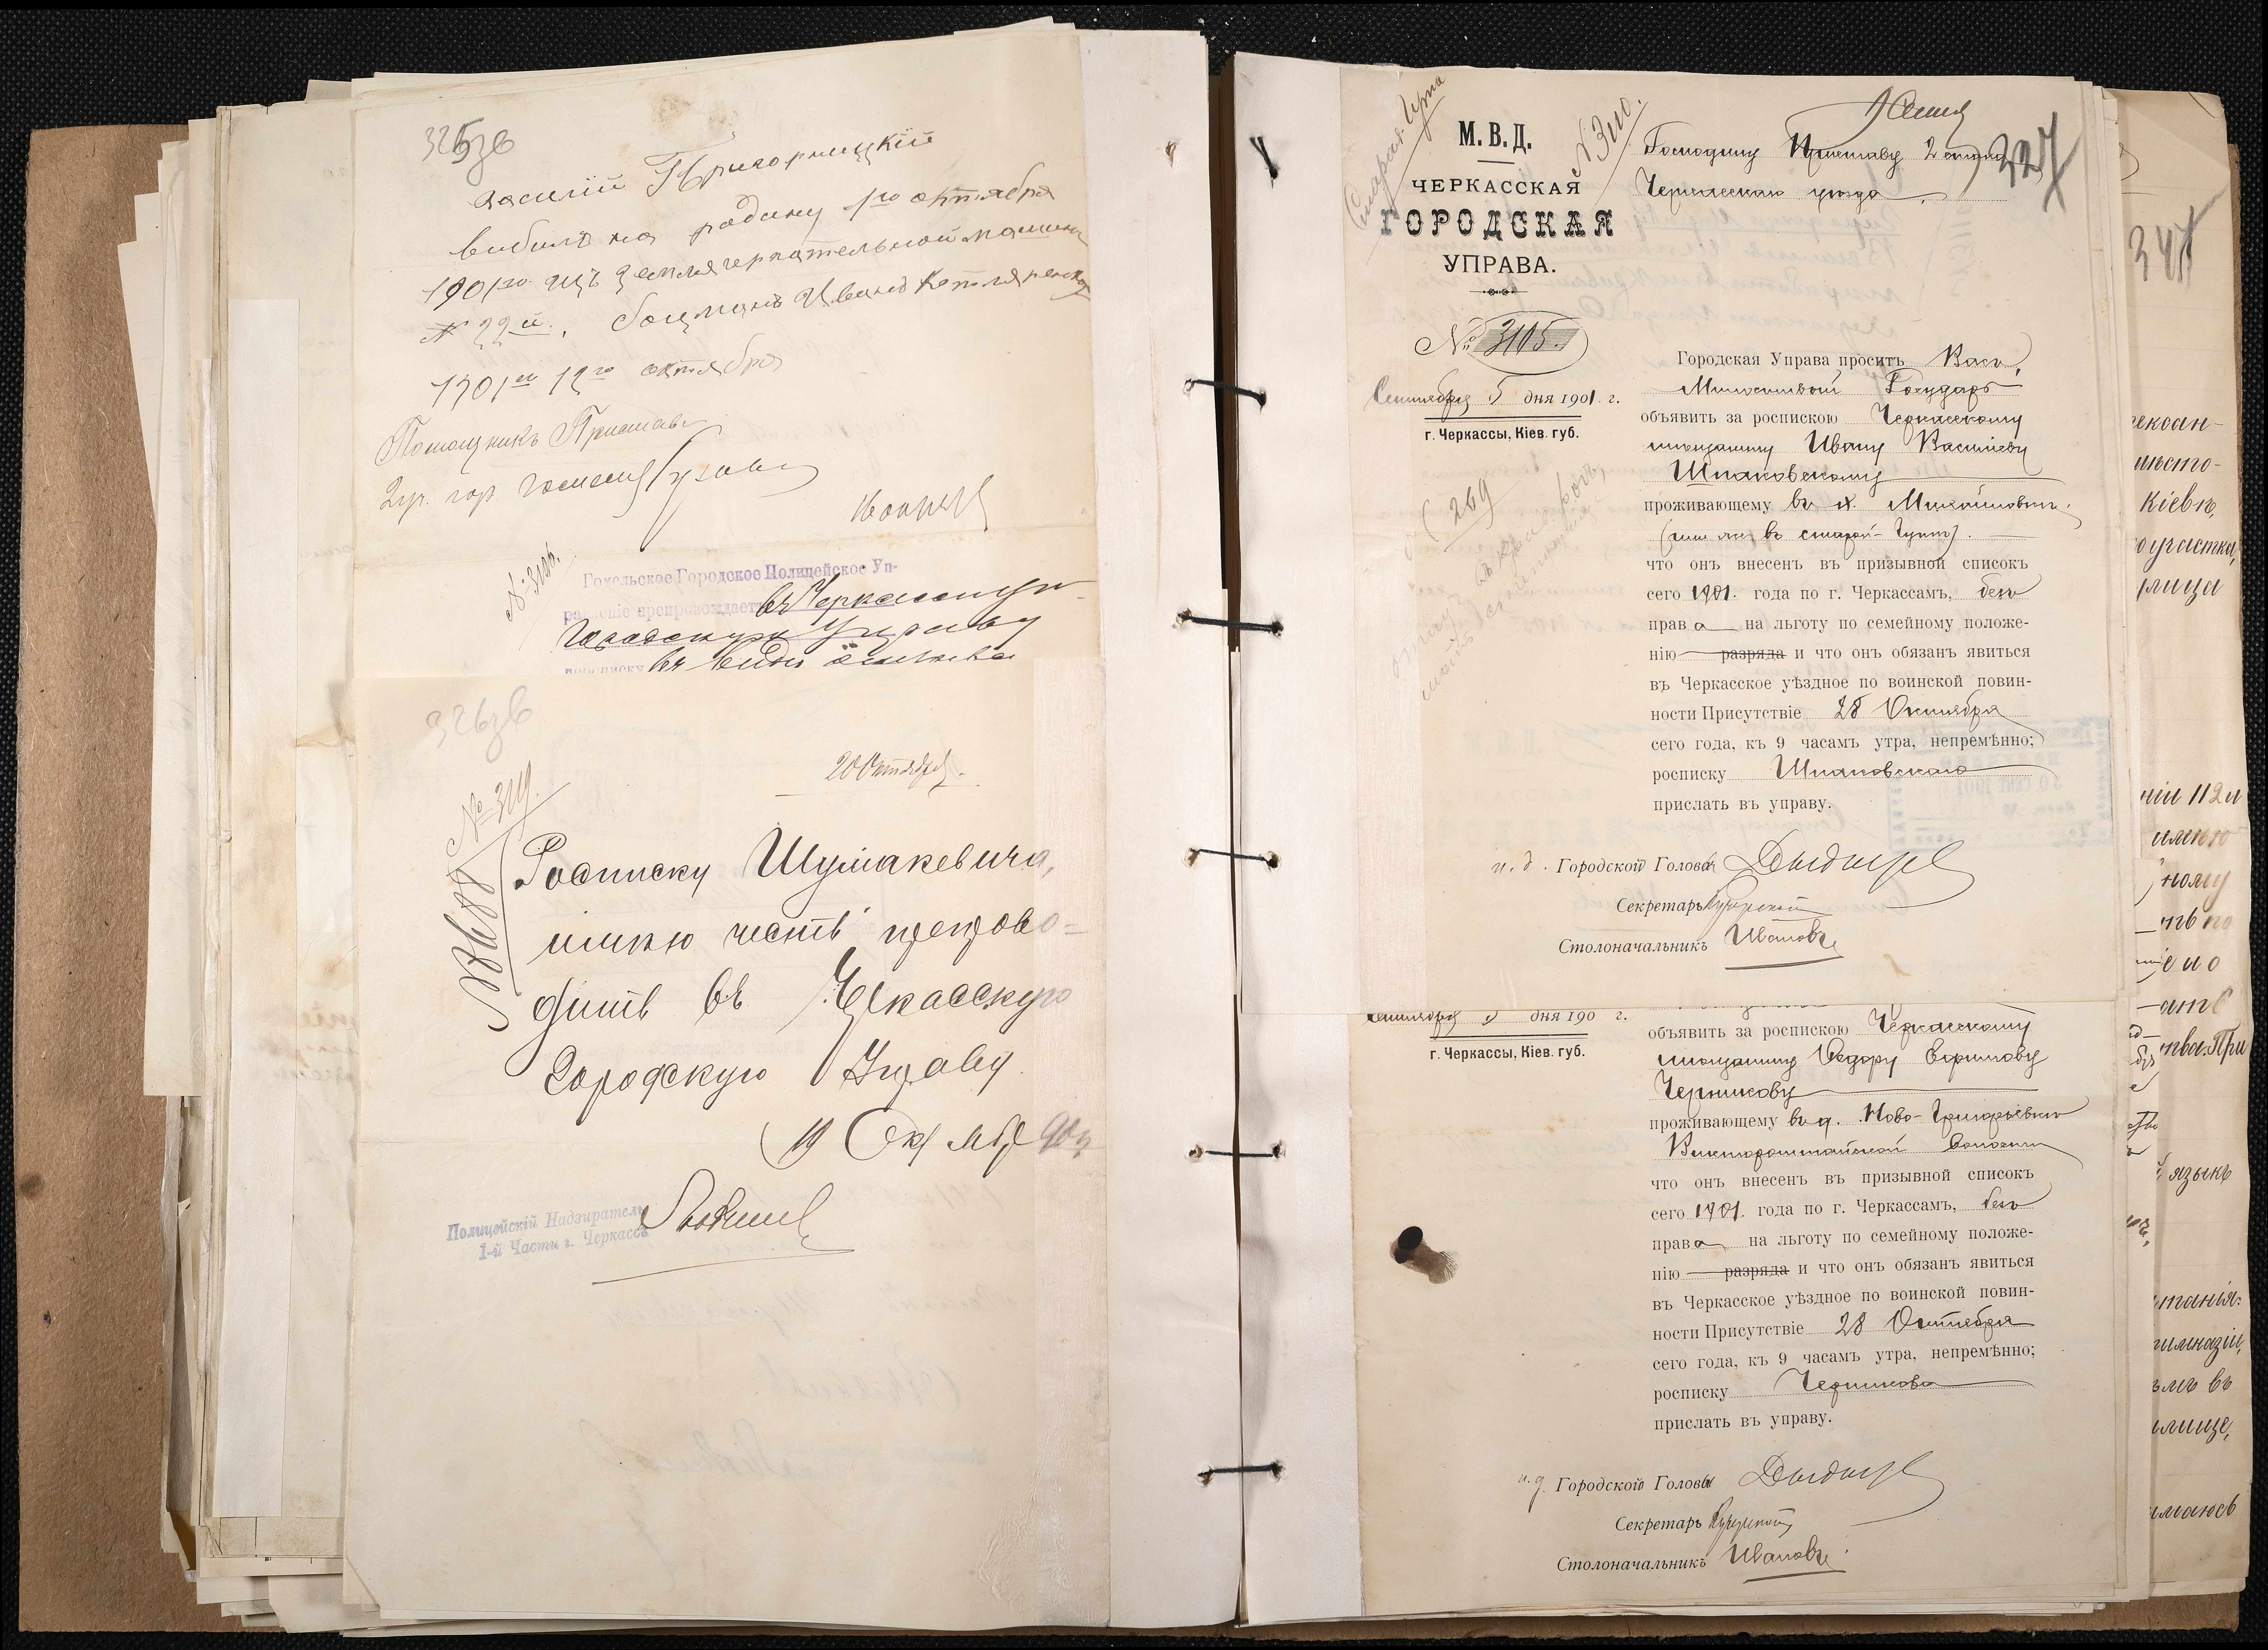 325зв
Василій Григорницкій
выбилъ на родину 1го октября
1901го изъ землячерпательной машины
№ 22й. боцманъ Иванъ Котляревскій
1901го 12го октября
Помощникъ Пристава
2 уч. гор. Гомеля
№ 3106.
Гомельское Городское Полицейское Уп-
равленіе препровождаетъ въ Черкасскую
Городскую Управу
въ видѣ
326зв
20 Октября.
№ 3119.
Росписку Шумакевича,
имѣю честь препрово-
дить въ Черкасскую
Городскую Управу.
19 Октября 901 г
Полицейскій Надзиратель
1-й Части г. Черкассъ
Старая Чута
№ 3110.
М. В. Д.
ЧЕРКАССКАЯ
ГОРОДСКАЯ
УПРАВА.
№ 3105.
Сентября 5 дня 1901 г.
г. Черкассы, Кіев. губ.
(269)
327
Господину Приставу 2 стана
Черкасскаго уѣзда.
Городская Управа проситъ Васъ,
Милостивый Государь
объявить за роспискою Черкасскому
мѣщанину Ивану Васильеву
Шпаковскому
проживающему въ х. Михайловкѣ
(или же въ старой-Чутѣ).
что онъ внесенъ въ призывной списокъ
сего 1901. года по г. Черкассамъ, безъ
права на льготу по семейному положе-
нію разряда и что онъ обязанъ явиться
въ Черкасское уѣздное по воинской повин-
ности Присутствіе 28 Октября
сего года, къ 9 часамъ утра, непремѣнно;
росписку Шпаковскаго
прислать въ управу.
и. д. Городской Головы
Секретарь
Столоначальникъ Ивановъ
Сентября 5 дня 190 г.
г. Черкассы, Кіев. губ.
объявить за роспискою Черкасскому
мѣщанину Федору Ефимову
Черникову
проживающему въ д. Ново-Григорьевкѣ
волости
что онъ внесенъ въ призывной списокъ
сего 1901. года по г. Черкассамъ, безъ
права на льготу по семейному положе-
нію разряда и что онъ обязанъ явиться
въ Черкасское уѣздное по воинской повин-
ности Присутствіе 28 Октября
сего года, къ 9 часамъ утра, непремѣнно;
росписку Черникова
прислать въ управу.
и. д. Городской Головы
Секретарь
Столоначальникъ Ивановъ
347
Кіевѣ,
участка,
улица
ніи 112 и
языкъ
гимназіи,